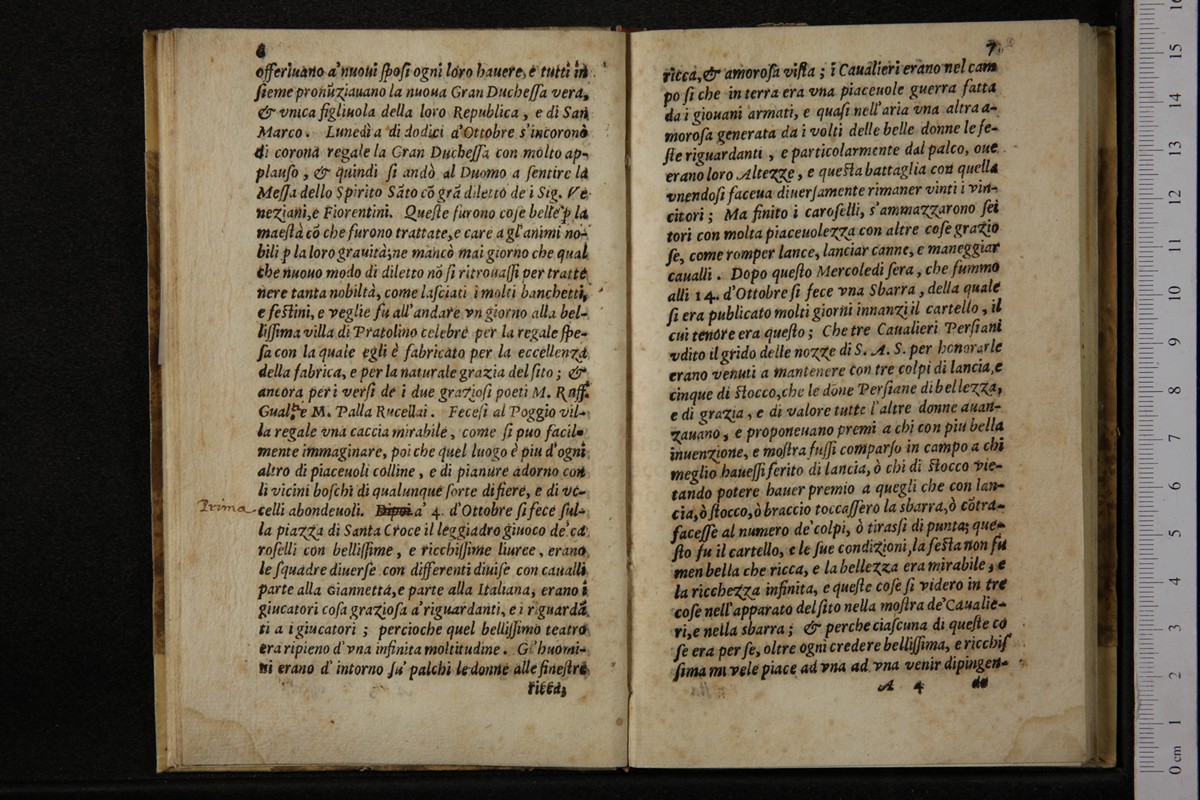 6
offeriuano a' nuoui ſpoſi ogni loro hauere, e tutti in
ſieme pronũziauano la nuoua Gran Ducheſſa vera,
& vnica figliuola della loro Republica, e di San
Marco. Lunedì a di dodici d'Ottobre s'incoronò
di corona regale la Gran Ducheſſa con molto ap-
plauſo, & quindi ſi andò al Duomo a ſentire la
Meſſa dello Spirito Sãto cõ grã diletto de i Sig. Ve
neziani, e Fiorentini. Queſte furono coſe belle p la
maeſtà cõ che furono trattate, e care a gl'animi no-
bili p la loro grauità; ne mancò mai giorno che qual
che nuouo modo di diletto nõ ſi ritrouaſſi per tratte
nere tanta nobiltà, come laſciati i molti banchetti,
e feſtini, e veglie fu all'andare vn giorno alla bel-
liſſima villa di Pratolino celebre per la regale ſpe-
ſa con la quale egli è fabricato per la eccellenza
della fabrica, e per la naturale grazia del ſito; &
ancora per i verſi de i due grazioſi poeti M. Raff.
Gual. e M. Palla Rucellai. Feceſi al Poggio vil-
la regale vna caccia mirabile, come ſi puo facil-
mente immaginare, poi che quel luogo è piu d'ogni
altro di piaceuoli colline, e di pianure adorno con
li vicini boſchi di qualunque ſorte di fiere, e di vc-
Prima celli abondeuoli. Dipoi a' 4. d'Ottobre ſi fece ſul-
la piazza di Santa Croce il leggiadro giuoco de' ca
roſelli con belliſſime, e ricchiſſime liuree, erano
le ſquadre diuerſe con differenti diuiſe con caualli
parte alla Giannetta, e parte alla Italiana, erano i
giucatori coſa grazioſa a' riguardanti, e i riguardã
ti a i giucatori; percioche quel belliſſimo teatro
era ripieno d'vna infinita moltitudine. G'huomi-
ni erano d'intorno ſu' palchi le donne alle fineſtre
ricca,
7
ricca, & amoroſa viſta; i Caualieri erano nel cam
po ſi che in terra era vna piaceuole guerra fatta
da i giouani armati, e quaſi nell'aria vna altra a-
moroſa generata da i volti delle belle donne le fe-
ſte riguardanti, e particolarmente dal palco, oue
erano loro Altezze, e queſta battaglia con quella
vnendoſi faceua diuerſamente rimaner vinti i vin-
citori; Ma finito i caroſelli, s'ammazzarono ſei
tori con molta piaceuolezza con altre coſe grazio
ſe, come romper lance, lanciar canne, e maneggiar
caualli. Dopo queſto Mercoledi ſera, che fummo
alli 14. d'Ottobre ſi fece vna Sbarra, della quale
ſi era publicato molti giorni innanzi il cartello, il
cui tenore era queſto; Che tre Caualieri Perſiani
vdito il grido delle nozze di S. A. S. per honorarle
erano venuti a mantenere con tre colpi di lancia, e
cinque di ſtocco, che le dõne Perſiane di bellezza,
e di grazia, e di valore tutte l'altre donne auan-
zauano, e proponeuano premi a chi con piu bella
inuenzione, e moſtra fuſſi comparſo in campo a chi
meglio haueſſi ferito di lancia, ò chi di ſtocco vie-
tando potere hauer premio a quegli che con lan-
cia, ò ſtocco, ò braccio toccaſſero la sbarra, ò cõtra-
faceſſe al numero de' colpi, ò tiraſſi di punta; que-
ſto fu il cartello, e le ſue condizioni, la feſta non fu
men bella che ricca, e la bellezza era mirabile, e
la ricchezza infinita, e queſte coſe ſi videro in tre
coſe nell'apparato del ſito nella moſtra de' Caualie-
ri, e nella sbarra; & perche ciaſcuna di queſte co
ſe era per ſe, oltre ogni credere belliſſima, e ricchiſ
ſima mi vele piace ad vna ad vna venir dipingen-
A 4 do